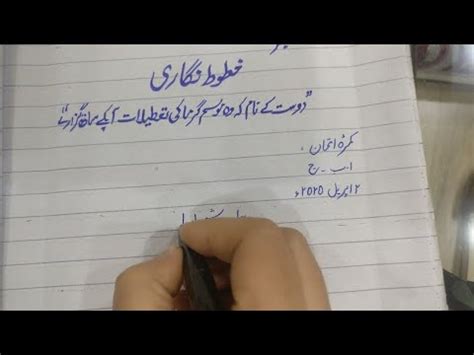 خطوط نگاری
"دوست کے نام کہ وہ موسم گرما کی تعطیلات آپکے ساتھ گزارے"
کمرۂ امتحان۔
ا۔ب۔ج
۱۲ اپریل ۲۰۲۵ء